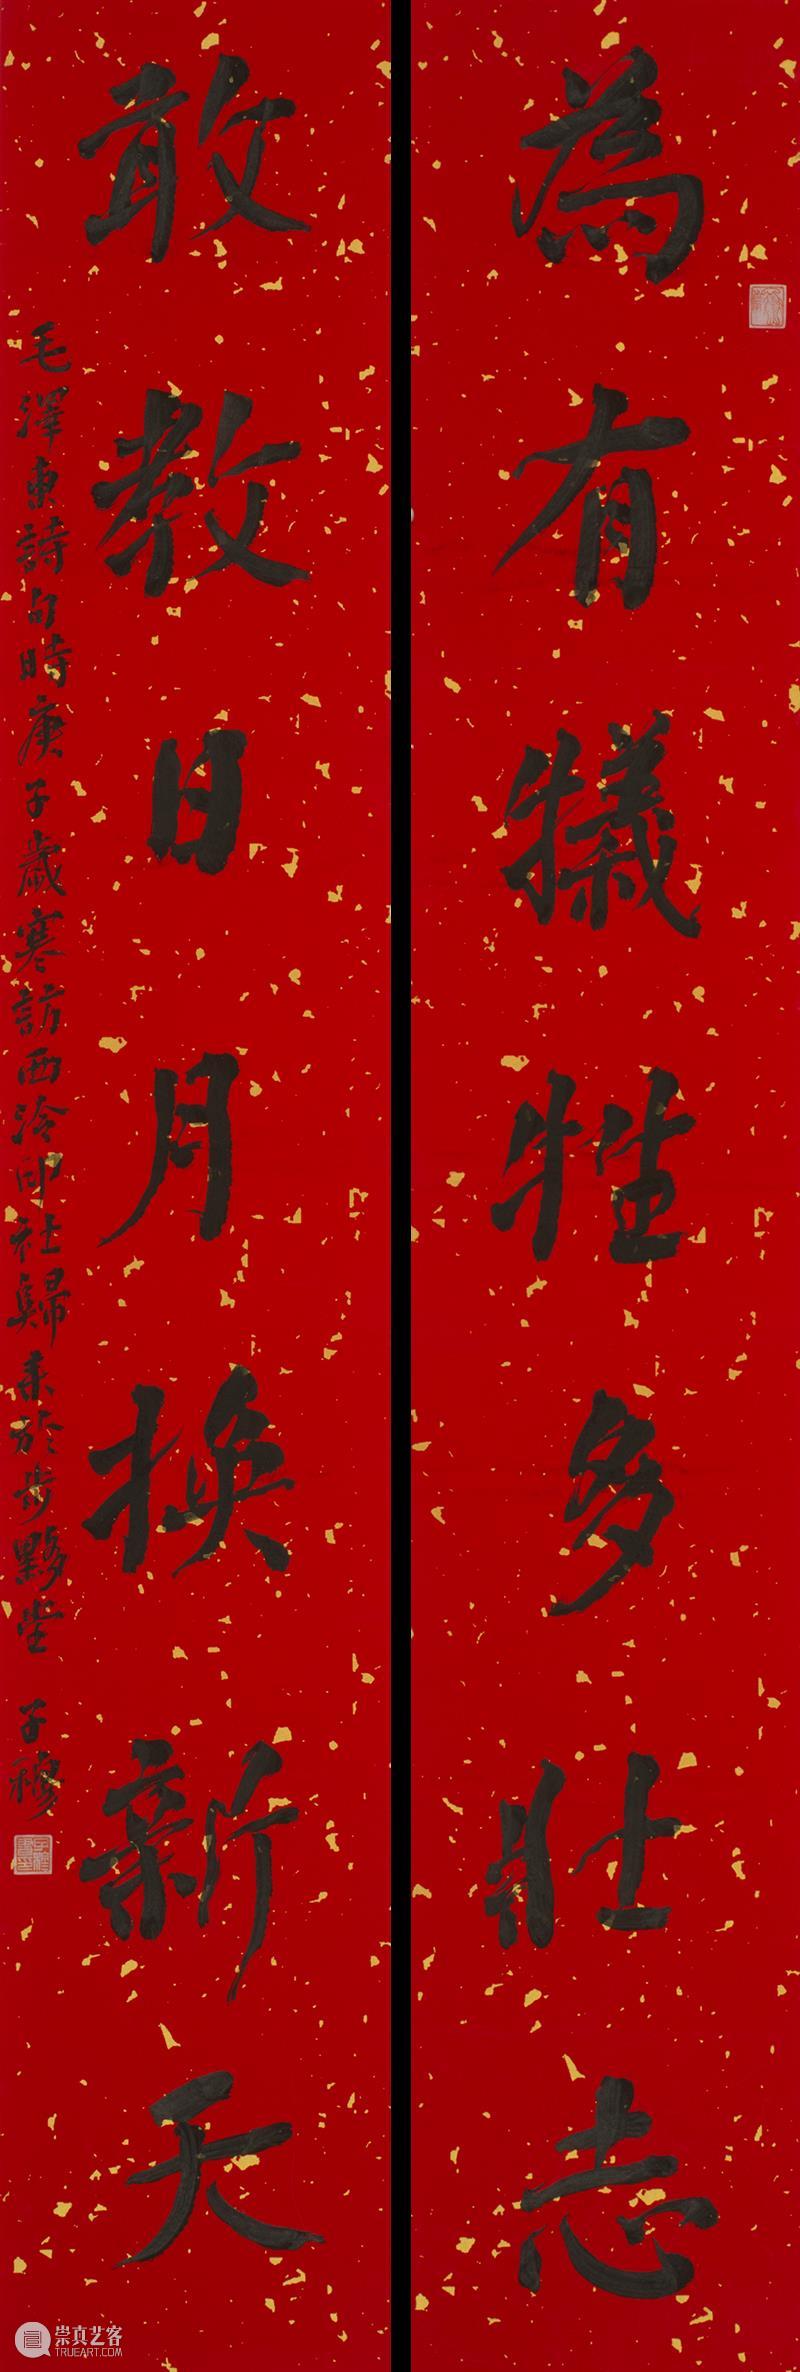 為有犧牲多壯志
敢教日月換新天
毛澤東詩句時庚子歲寒訪西泠印社歸來於步黟堂 子穆
崇真艺客
TRUEART.COM